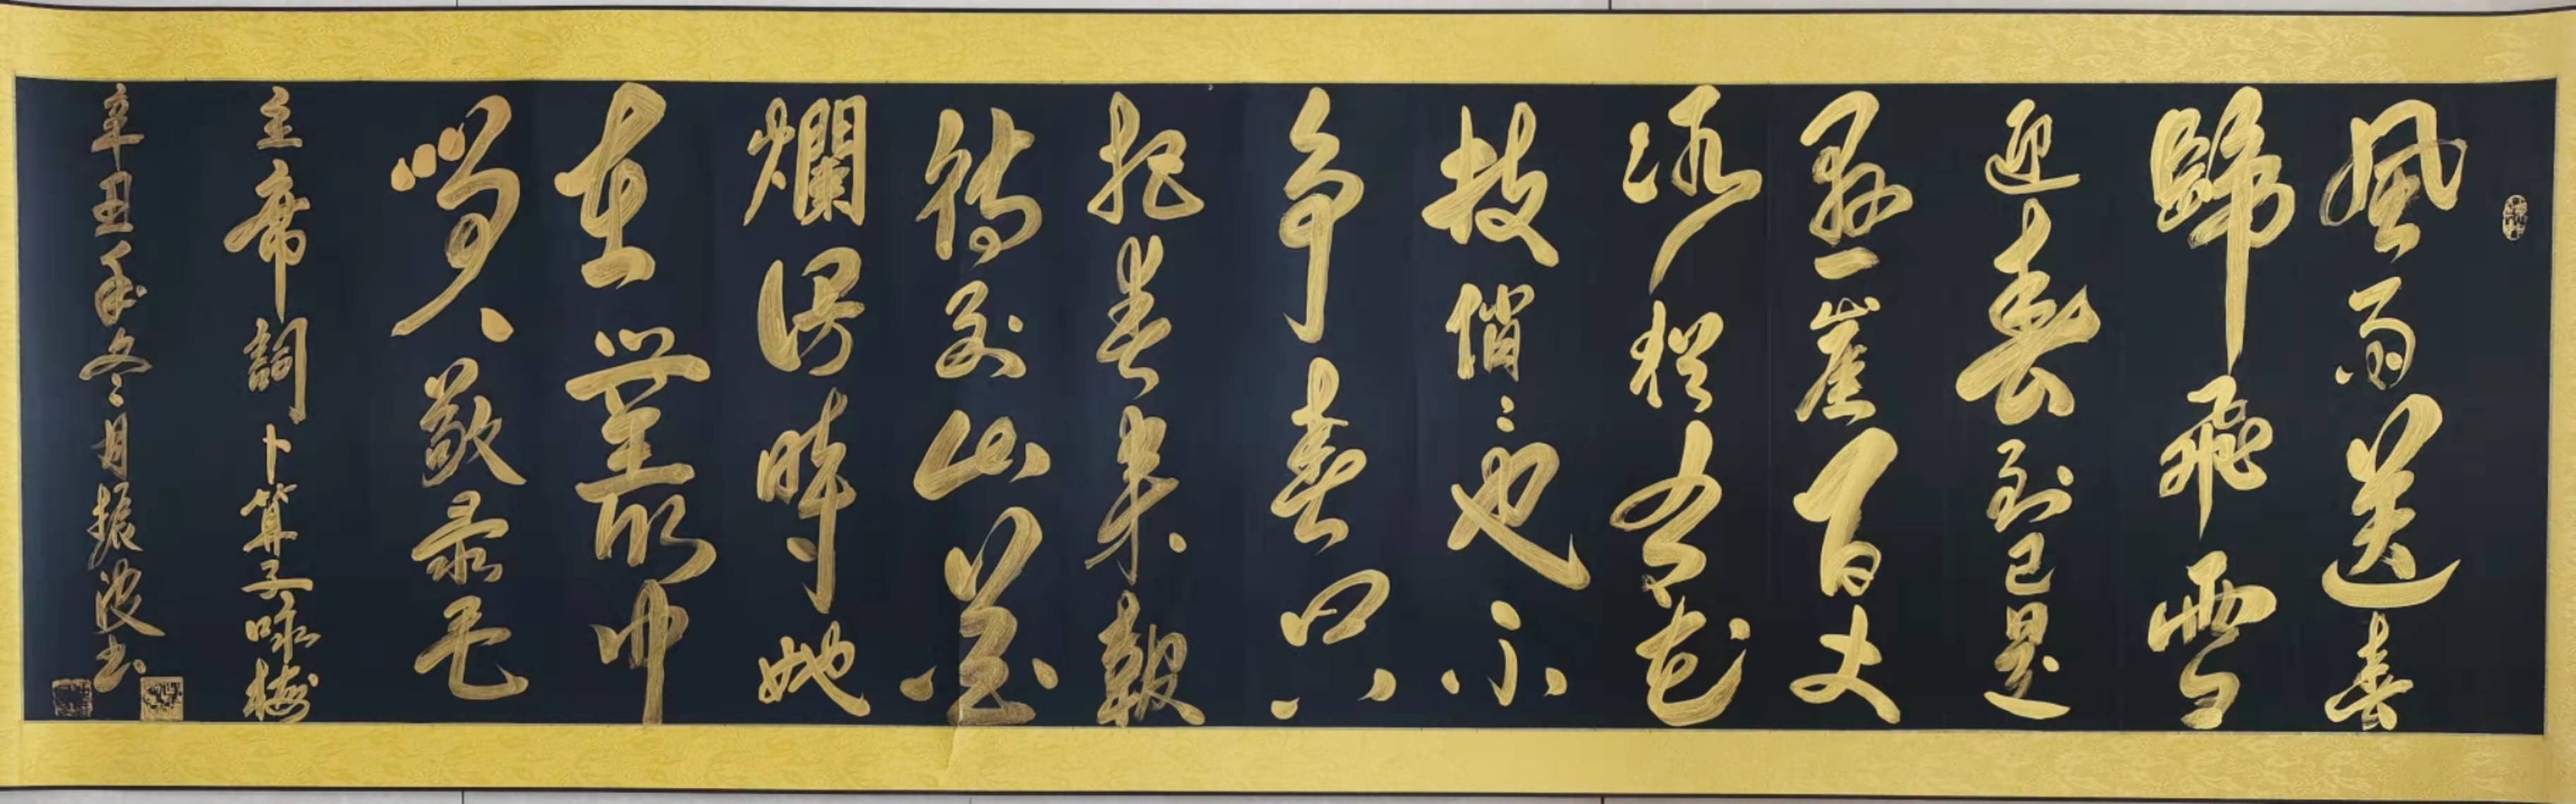 風雨送春
歸飛雪
迎春到已是
悬崖百丈
冰猶有花
枝俏〻也不
争春只
把春来報
待到山花
爛漫時她
在叢中
笑敬录毛
主席詞卜算子咏梅
辛丑年冬月振波书